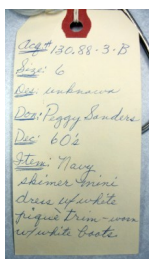 Acq# 130.88.3.B
Size: 6
Des: unknown
Don: Peggy Sanders
Dec: 60's
Item: Navy
skimer mini
dress w/white
piqué trim - worn
w/white boots